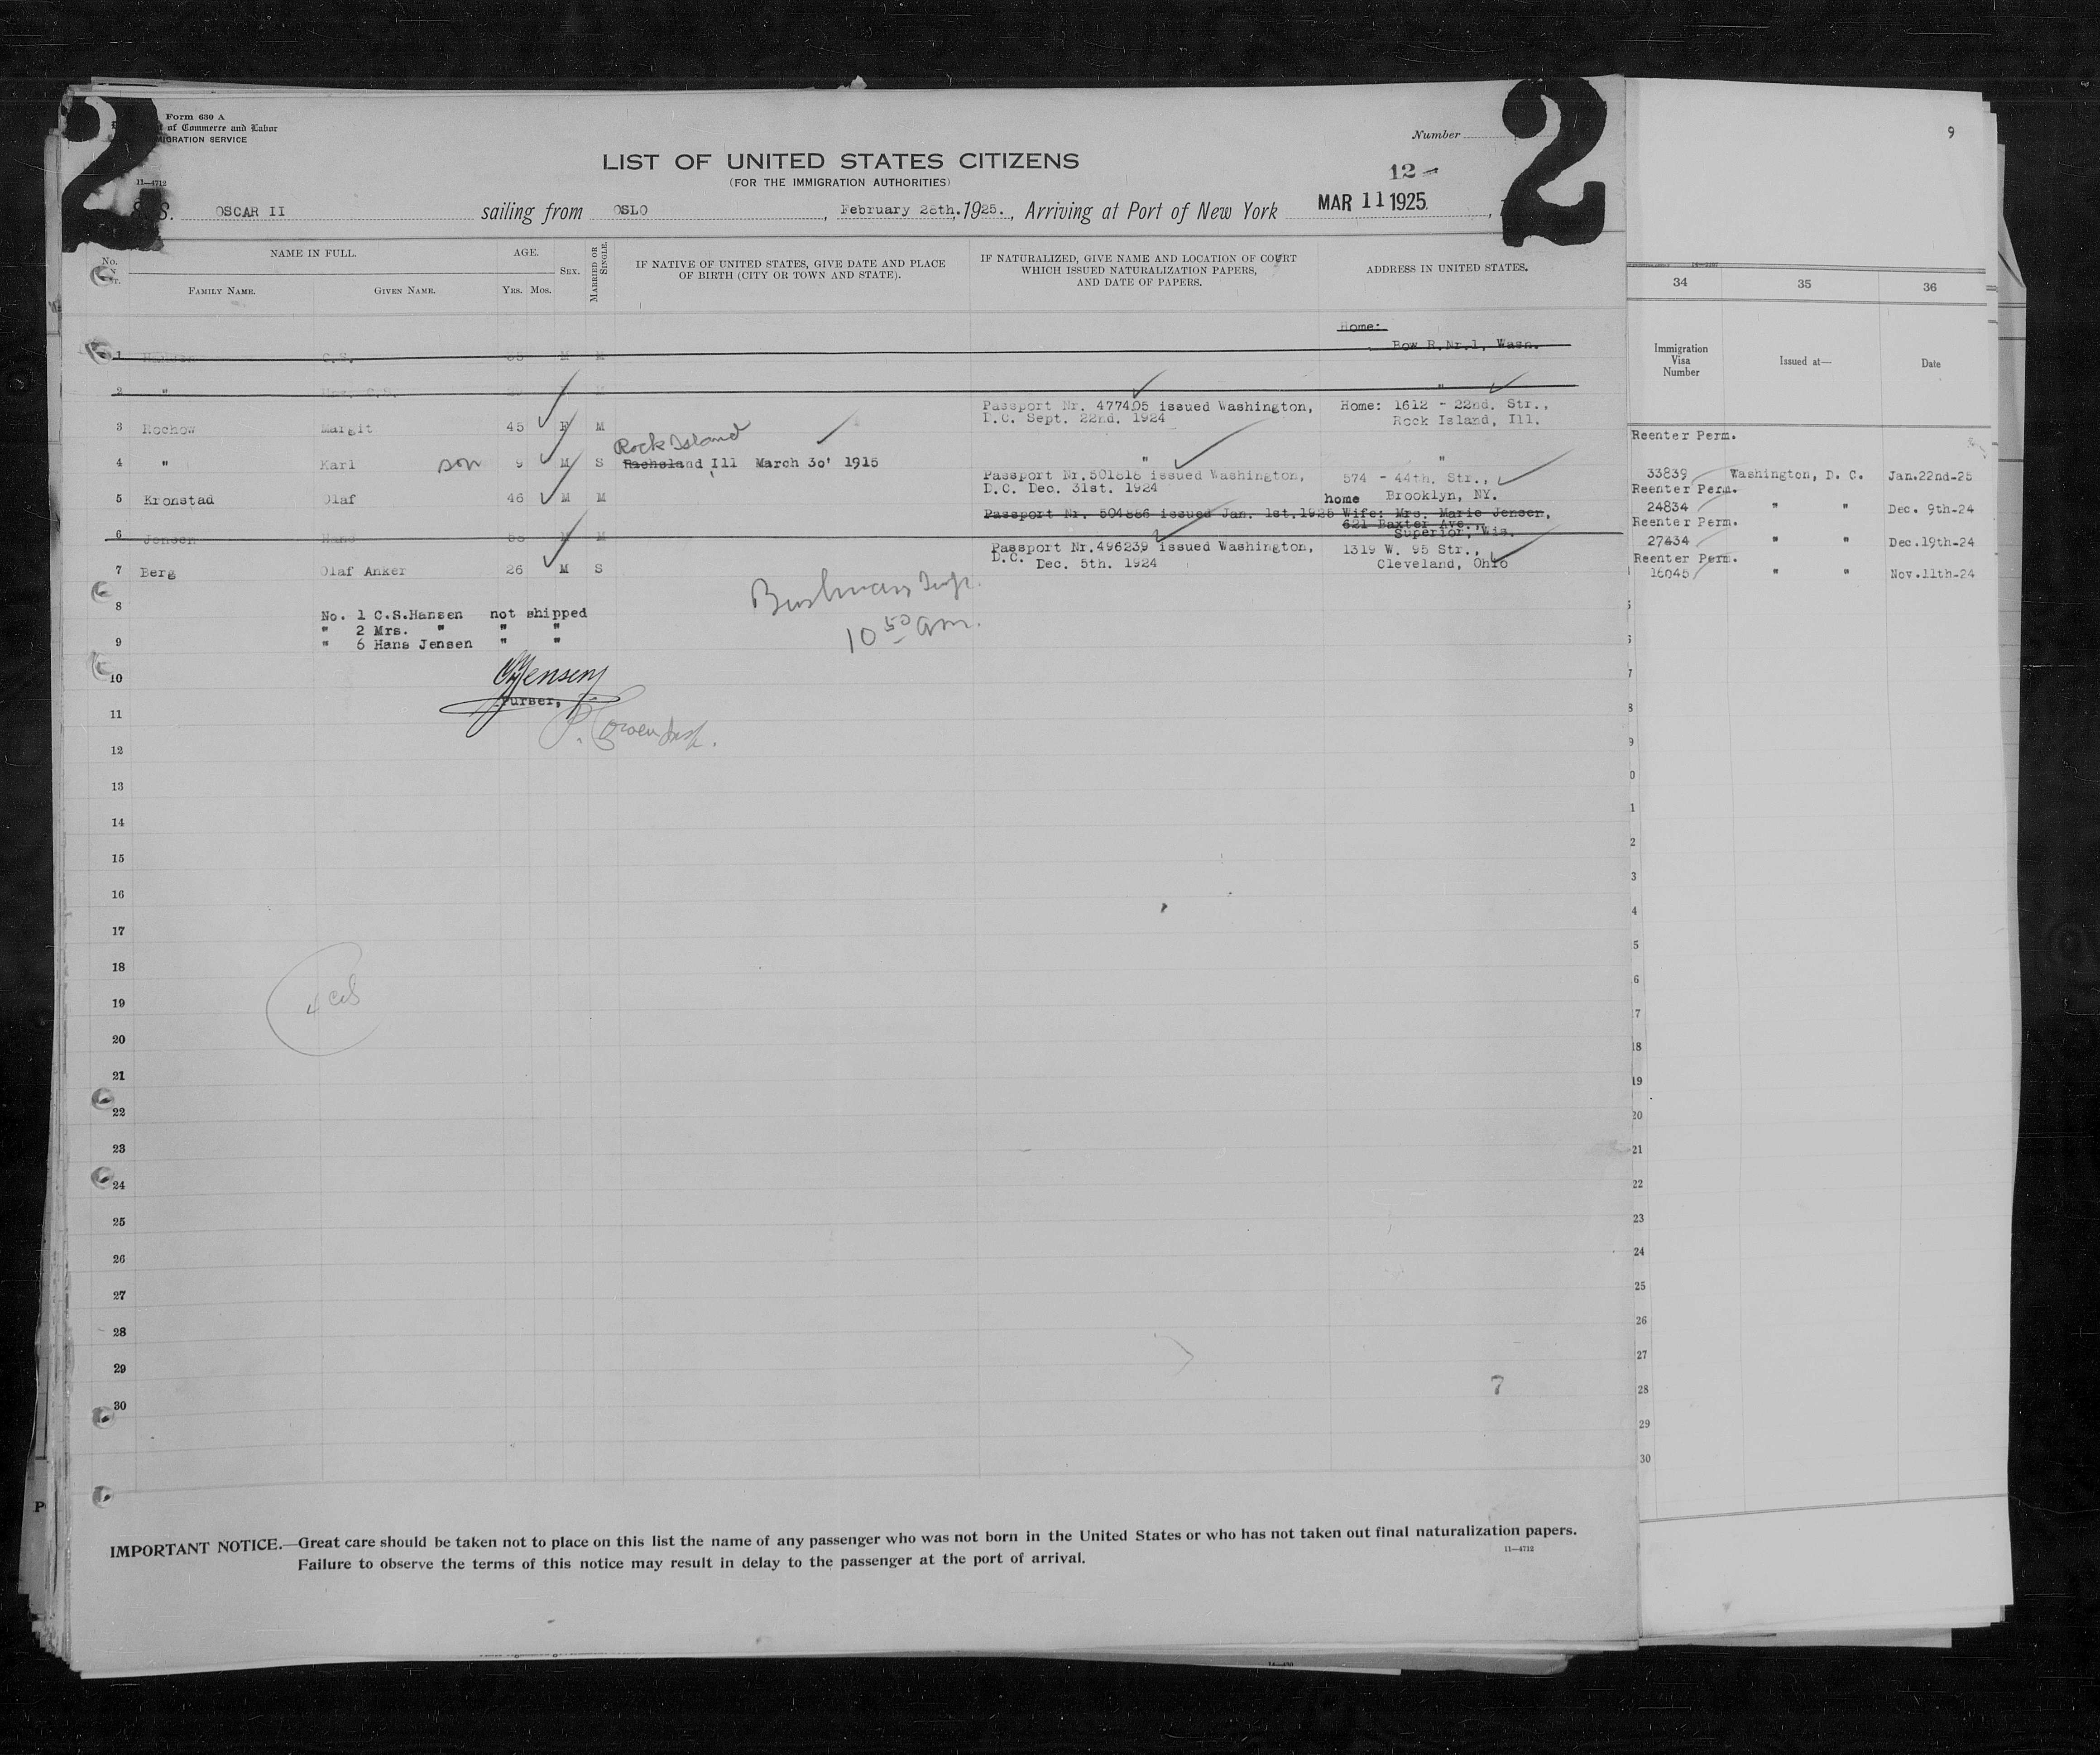 2 2
Form 630 A
of Commerce and Labor
IMMIGRATION SERVICE
11—4712
Number
9
LIST OF UNITED STATES CITIZENS
(FOR THE IMMIGRATION AUTHORITIES)
12
S.S. OSCAR II sailing from OSLO, February 26th. 1925., Arriving at Port of New York MAR 11 1925.
NAME IN FULL. AGE. SEX. MARRIED OR SINGLE. IF NATIVE OF UNITED STATES, GIVE DATE AND PLACE OF BIRTH (CITY OR TOWN AND STATE). IF NATURALIZED, GIVE NAME AND LOCATION OF COURT WHICH ISSUED NATURALIZATION PAPERS, AND DATE OF PAPERS. ADDRESS IN UNITED STATES.
No.
FAMILY NAME. GIVEN NAME. YRS. MOS.
Home:
1 Hansen M M Bow R.Nr.1, Wash.
2 " M "
Passport Nr. 477405 issued Washington, Home: 1612 - 22nd. Str.,
3 Rochow Margit 45 F M D.C. Sept. 22nd. 1924 Rock Island, Ill.
Rock Island
4 " Karl son 9 M S Rachsland Ill March 30' 1915 " "
Passport Nr.501818 issued Washington, 574 - 44th. Str.,
5 Kronstad Olaf 46 M M D.C. Dec. 31st. 1924 home Brooklyn, NY.
Passport Nr. 504886 issued Jan. 1st.1925 Wife: Mrs. Marie Jensen,
621 Baxter Ave.,
6 Jensen Hans M M Superior, Wis.
Passport Nr.496239 issued Washington, 1319 W. 95 Str.,
7 Berg Olaf Anker 26 M S D.C. Dec. 5th. 1924 Cleveland, Ohio
8
No. 1 C.S.Hansen not shipped
" 2 Mrs. " " "
9
" 6 Hans Jensen " "
10 50 am.
10
Jensen
Purser,
11
12
13
14
15
16
17
18
19
20
21
22
23
24
25
26
27
28
29
30
7
IMPORTANT NOTICE.—Great care should be taken not to place on this list the name of any passenger who was not born in the United States or who has not taken out final naturalization papers.
Failure to observe the terms of this notice may result in delay to the passenger at the port of arrival.
11—4712
34 35 36
Immigration Visa Number Issued at— Date
Reenter Perm.
33839 Washington, D. C. Jan.22nd-25
Reenter Perm.
24834 " " Dec. 9th-24
Reenter Perm.
27434 " " Dec.19th-24
Reenter Perm.
16045 " " Nov.11th-24
5
6
7
8
9
0
1
2
3
4
5
6
7
18
19
20
21
22
23
24
25
26
27
28
29
30
P